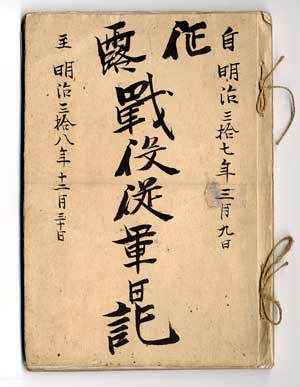 自 明治三拾七年三月九日
征露
戰役従軍日記
至 明治三拾八年十二月三十日